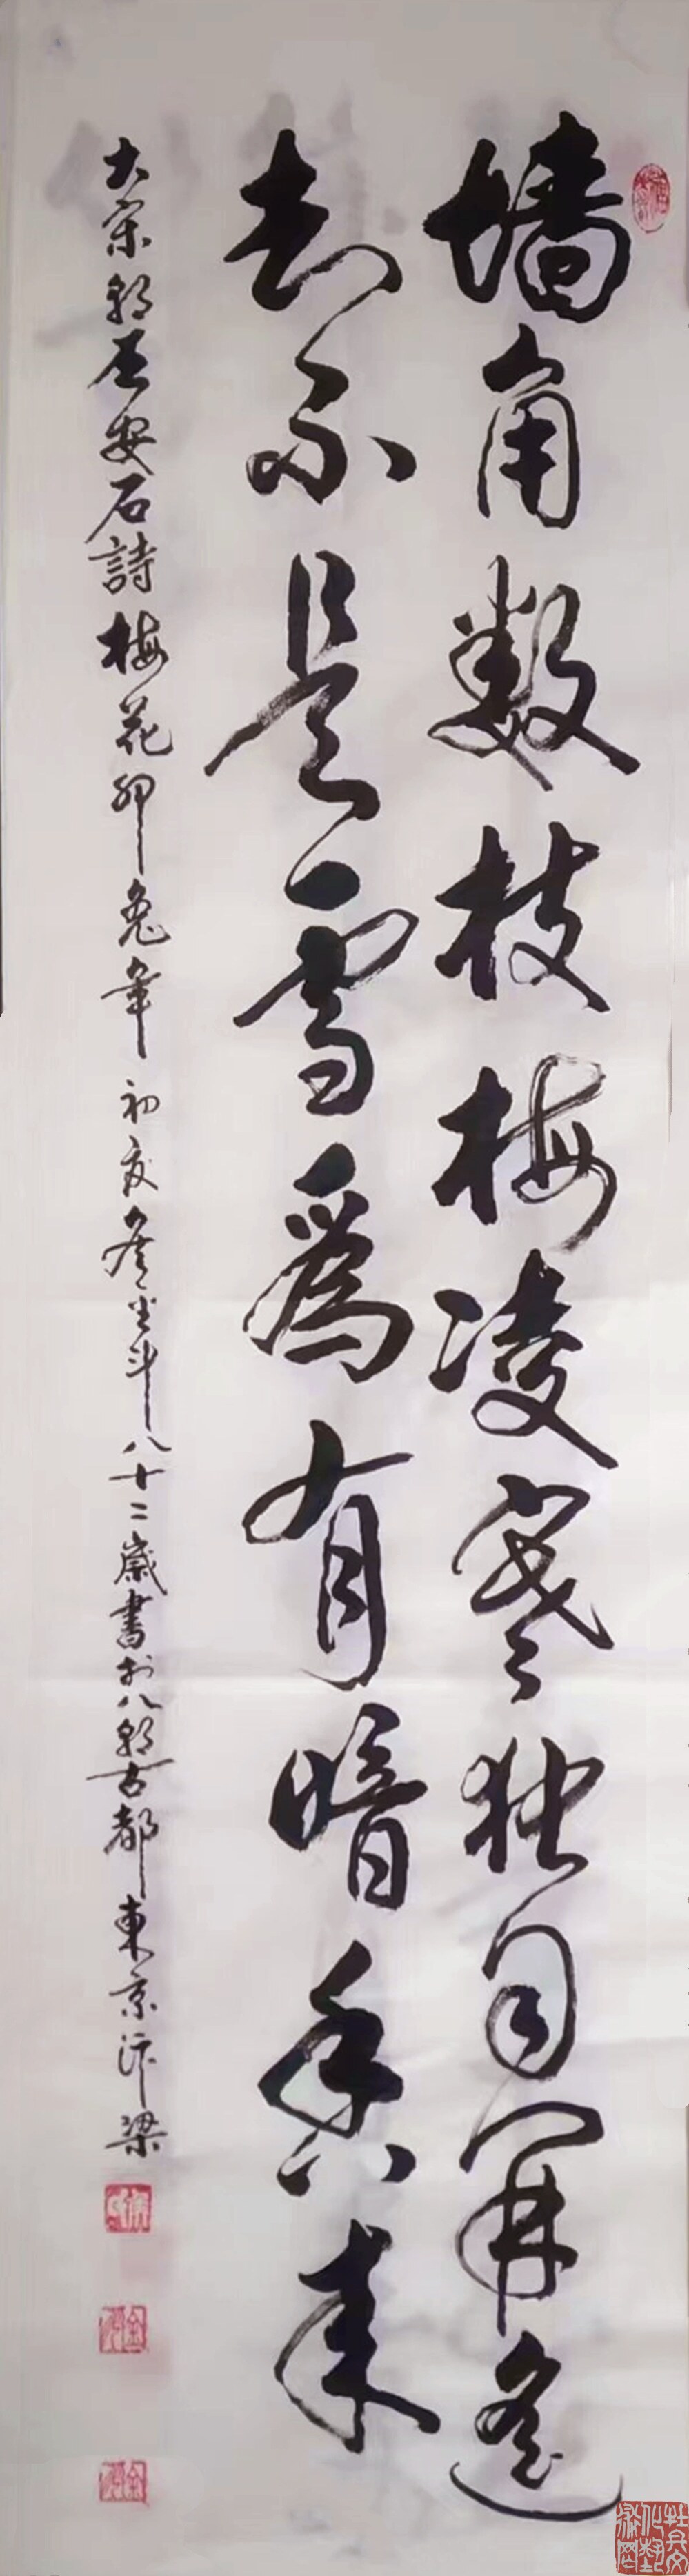 墙角数枝梅凌寒独自開遙
知不是雪為有暗香來
大宋朝王安石詩梅花卯兔年初夏金斗八十二歲書於八朝古都東京汴梁